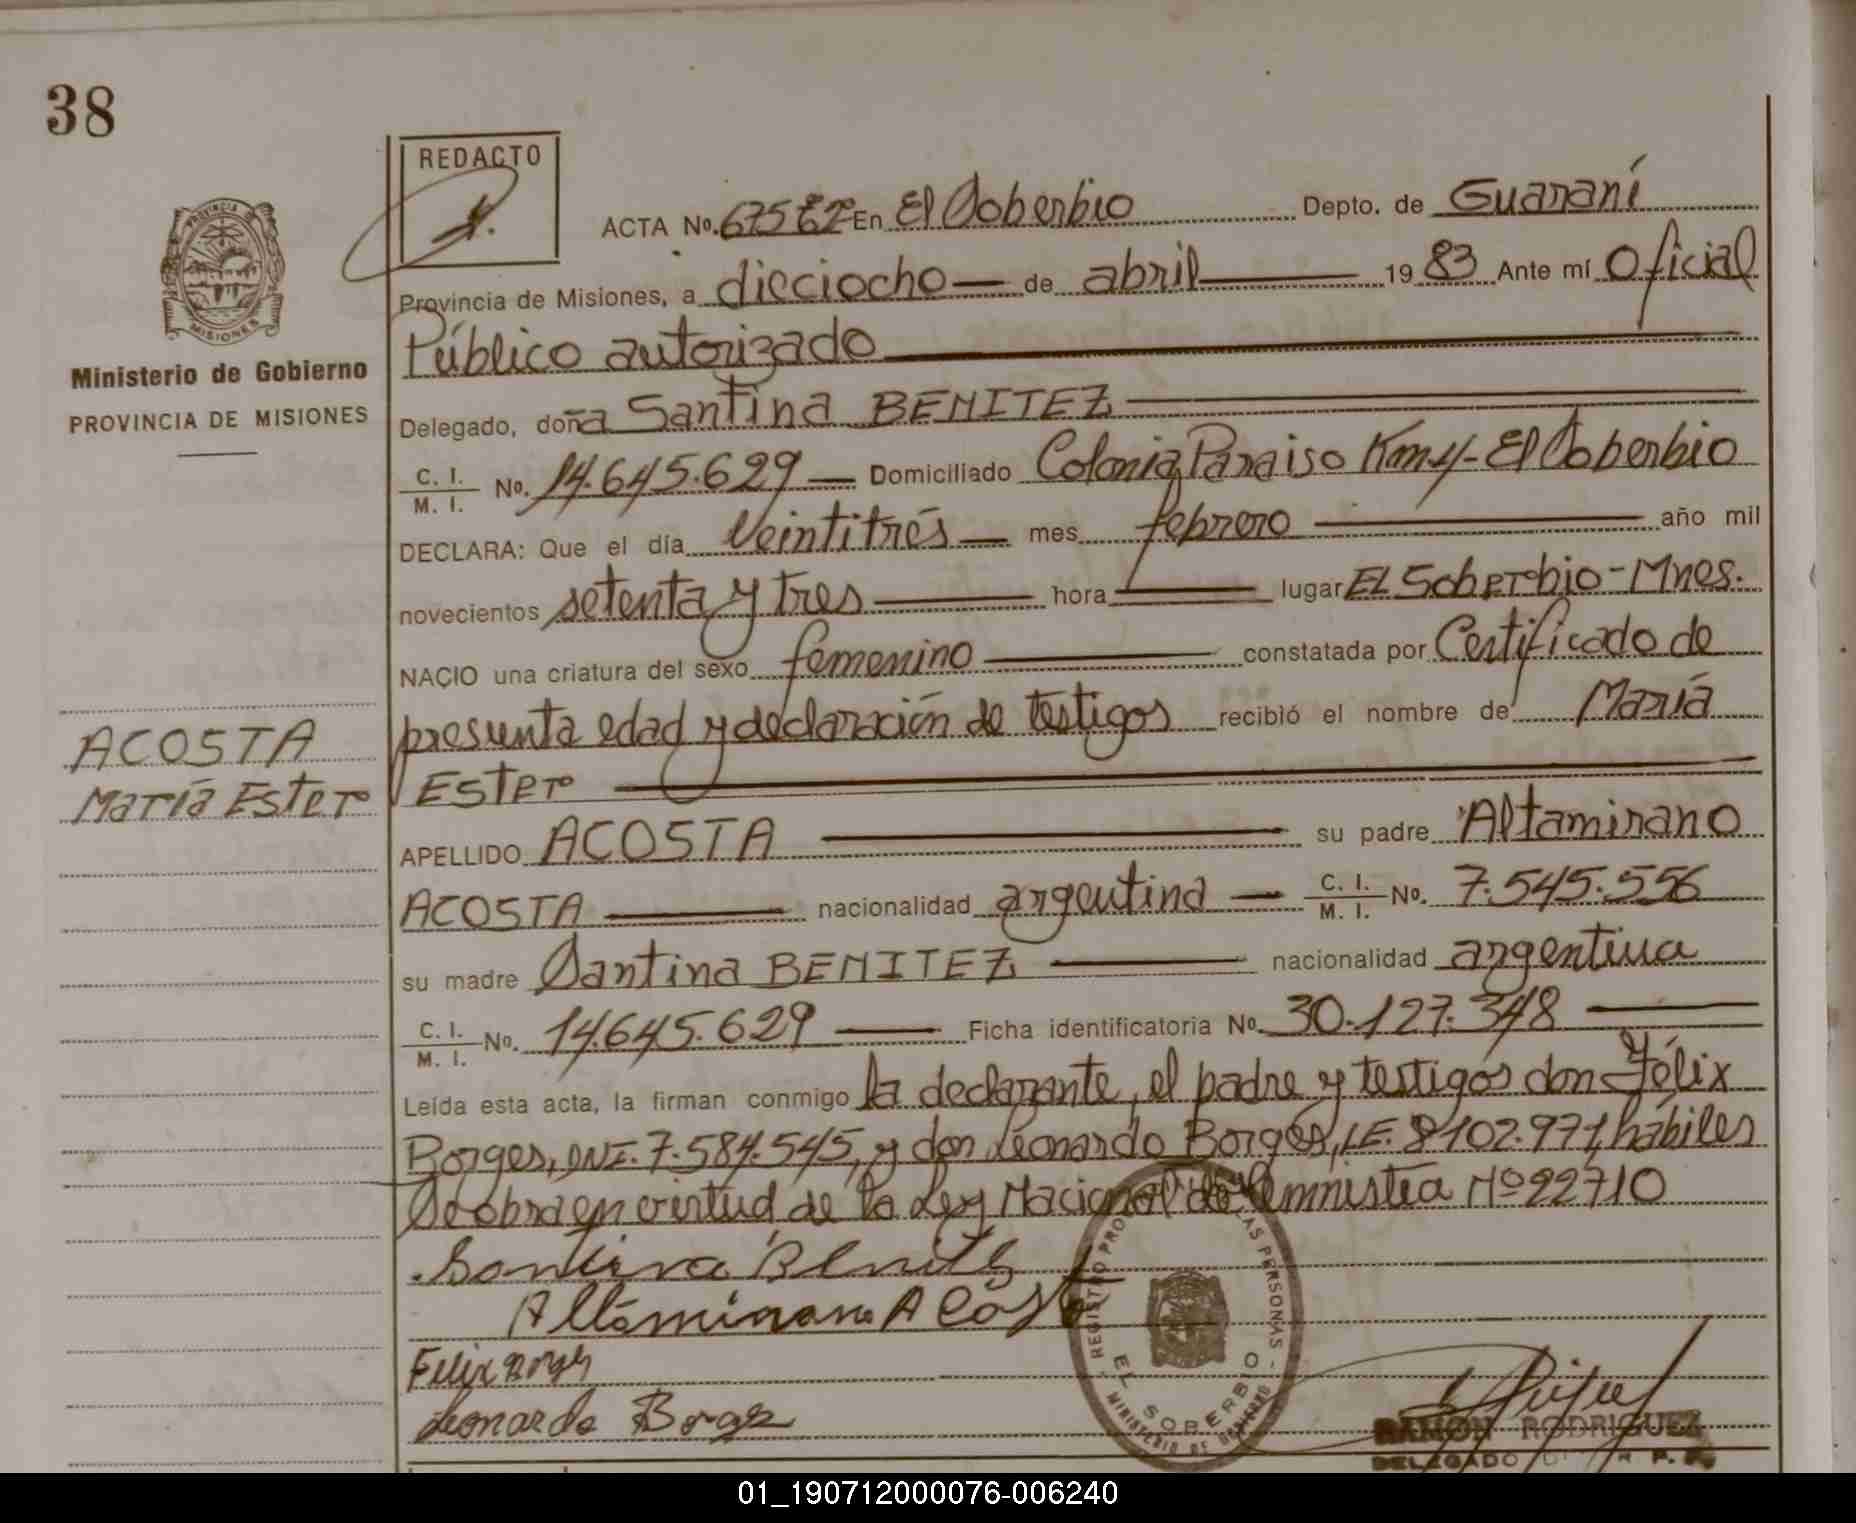 38
REDACTO
ACTA No. 675 Eº2º En El Soberbio Depto. de Guaraní
Provincia de Misiones, a dieciocho — de abril — 19 83 Ante mí Oficial
Público autorizado
Ministerio de Gobierno
PROVINCIA DE MISIONES
Delegado, doña Santina BENITEZ
C. I.
M. I. No. 14.645.629 — Domiciliado Colonia Paraiso Km 4 - El Soberbio
DECLARA: Que el día Veintitrés — mes febrero — año mil
novecientos setenta y tres — hora — lugar EL Soberbio - Mnes.
NACIO una criatura del sexo femenino — constatada por Certificado de
presunta edad y declaración de testigos recibió el nombre de María
Ester
ACOSTA
María Ester
APELLIDO ACOSTA — su padre Altamirano
ACOSTA — nacionalidad argentina — C. I.
M. I. No. 7.545.556
su madre Santina BENITEZ — nacionalidad argentina
C. I.
M. I. No. 14.645.629 — Ficha identificatoria No. 30.127.348 —
Leída esta acta, la firman conmigo la declarante, el padre y testigos don Félix
Borges, DNI. 7.584.545, y don Leonardo Borges, LE. 8102.971, hábiles
Se obra en virtud de la Ley Nacional de Amnistia Nº 22710
Santina Benitez
Altamirano Acosta
Felix Borges
Leonardo Borges
EL SOBERBIO
MINISTERIO DE GOBIERNO
RAMON RODRIGUEZ
DELEGADO
01_190712000076-006240